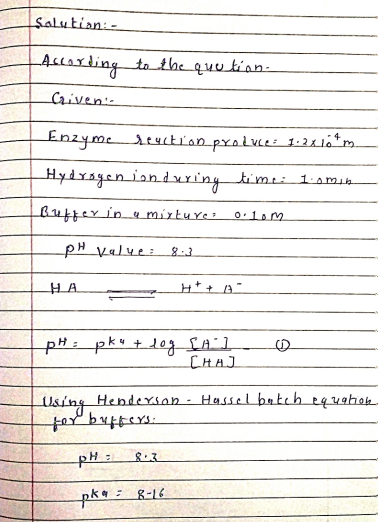 Solution:-
According to the quetion-
Given:-
Enzyme reaction produce= 1.2x10⁻⁴m
Hydrogen ion during time= 1.0min
Buffer in a mixture= 0.10M
pH value= 8.3
HA ⇌ H⁺ + A⁻
pH = pka + log [A⁻] - ①
[HA]
Using Henderson - Hasselbatch equation
for buffers:
pH = 8.3
pka = 8-16